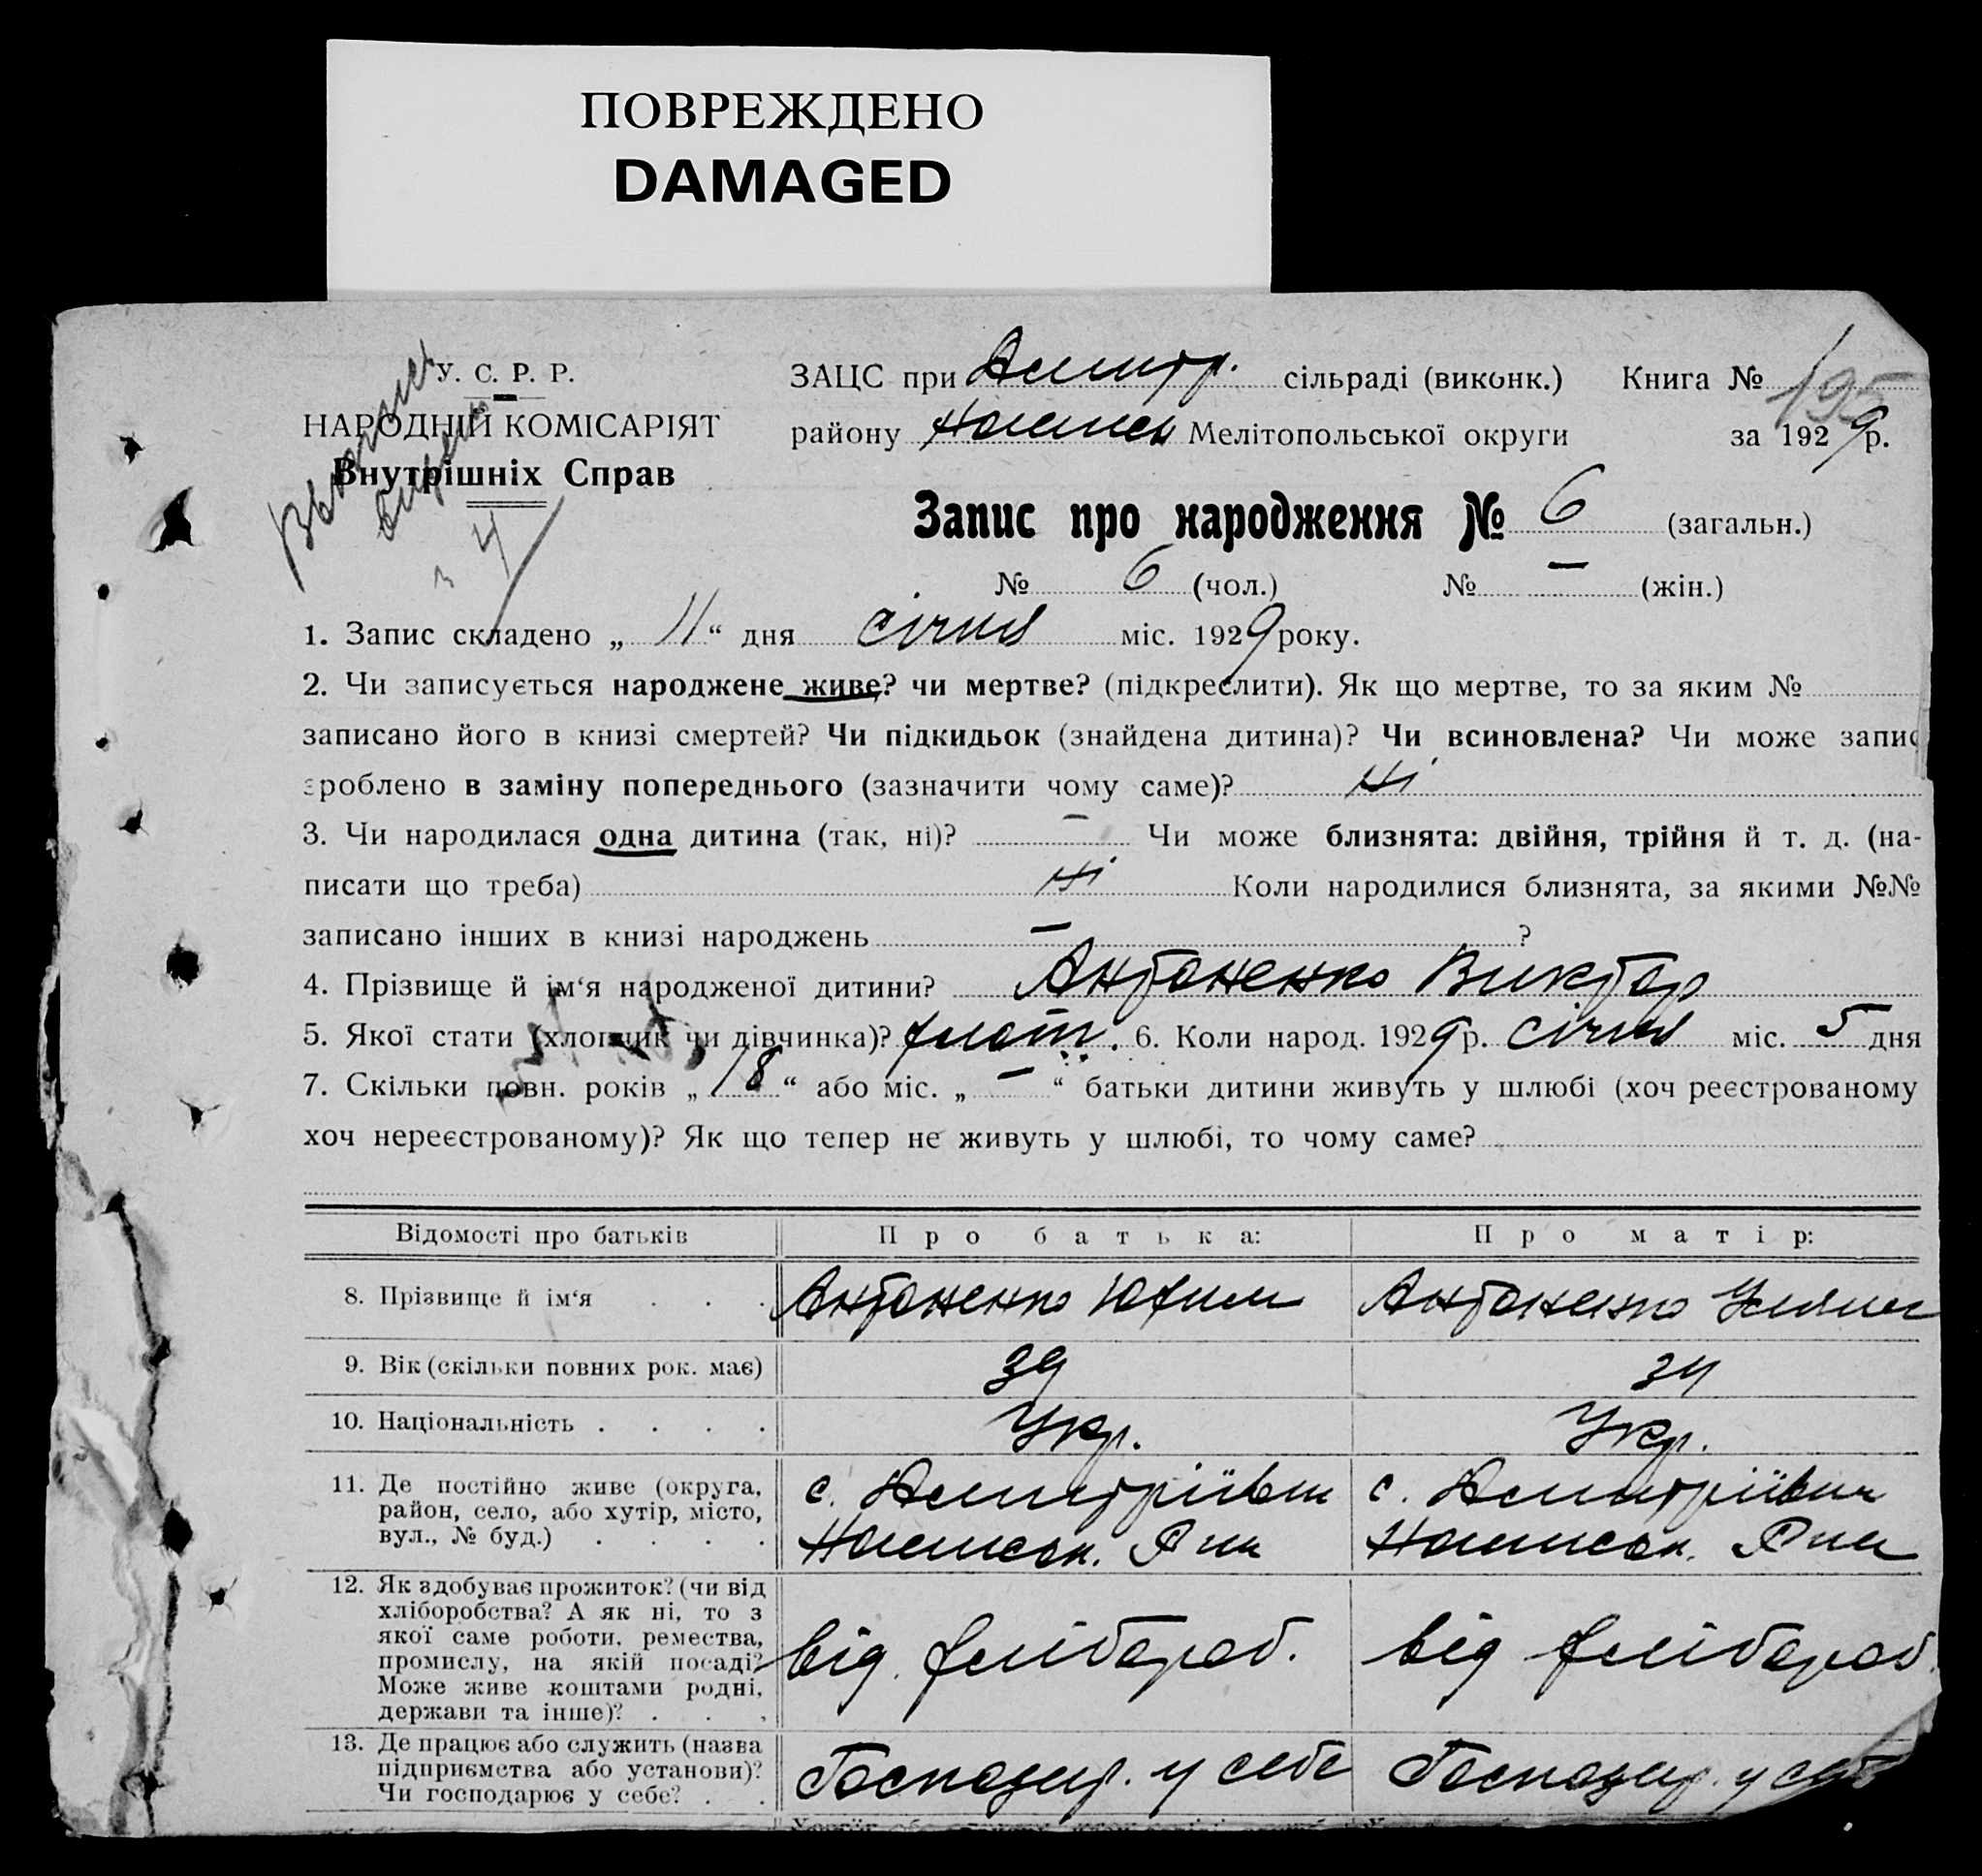 ПОВРЕЖДЕНО
DAMAGED
У. С. Р. Р.
НАРОДНІЙ КОМІСАРІЯТ
Внутрішніх Справ
ЗАЦС при Дмитр. сільраді (виконк.) Книга № 195
району Мелітопольської округи за 1929 р.
Запис про народження № 6 (загальн.)
№ 6 (чол.) № — (жін.)
1. Запис складено „ 11 “ дня січня міс. 1929 року.
2. Чи записується народжене живе? чи мертве? (підкреслити). Як що мертве, то за яким №
записано його в книзі смертей? Чи підкидьок (знайдена дитина)? Чи всиновлена? Чи може запис
зроблено в заміну попереднього (зазначити чому саме)? Ні
3. Чи народилася одна дитина (так, ні)? — Чи може близнята: двійня, трійня й т. д. (на-
писати що треба) Ні Коли народилися близнята, за якими №№
записано інших в книзі народжень — ?
4. Прізвище й ім‘я народженої дитини? Антоненко Виктор
5. Якої стати (хлопчик чи дівчинка)? хлопч. 6. Коли народ. 1929 р. січня міс. 5 дня
7. Скільки повн. років „ 18 “ або міс. „ — “ батьки дитини живуть у шлюбі (хоч реєстрованому
хоч нереєстрованому)? Як що тепер не живуть у шлюбі, то чому саме?
Відомості про батьків Про батька: Про матір:
8. Прізвище й ім‘я . . . Антоненко Юхим Антоненко Уляна
9. Вік (скільки повних рок. має) 39 34
10. Національність . . . . Укр. Укр.
11. Де постійно живе (округа,
район, село, або хутір, місто,
вул., № буд.) . . . .
с. Дмитріївки
Р-на
с. Дмитріївки
Р-на
12. Як здобуває прожиток? (чи від
хліборобства? А як ні, то з
якої саме роботи, ремества,
промислу, на якій посаді?
Може живе коштами родні,
держави та інше)? . . .
від хлібороб.
від хлібороб.
13. Де працює або служить (назва
підприємства або установи)?
Чи господарює у себе? . .
Господар. у себе
Господар. у себе